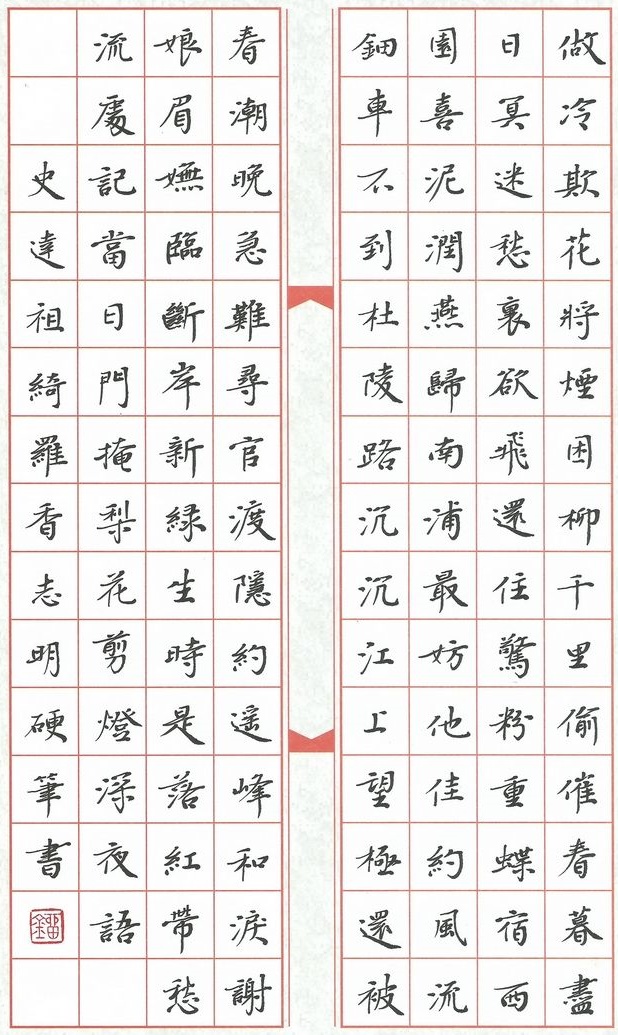 做冷欺花將煙困柳千里偷催春暮盡
日冥迷愁裏欲飛還住驚粉重蝶宿西
園喜泥潤燕歸南浦最妨他佳約風流
鈿車不到杜陵路沉沉江上望極還被
春潮晚急難尋官渡隱約遥峰和淚謝
娘眉嫵臨斷岸新綠生時是落紅帶愁
流處記當日門掩梨花剪燈深夜語
史達祖綺羅香志明硬筆書